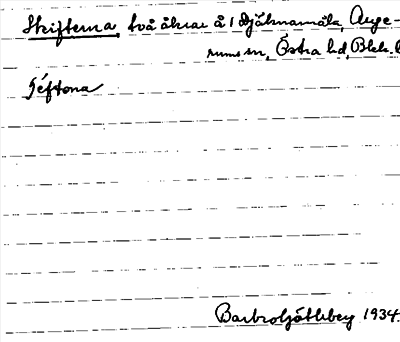 Skifterna, två åkrar å 1 Djäknamåla, Auge-
rums sn, Östra hd, Blek. l
Seftona
Barbro Götlsbey 1934.